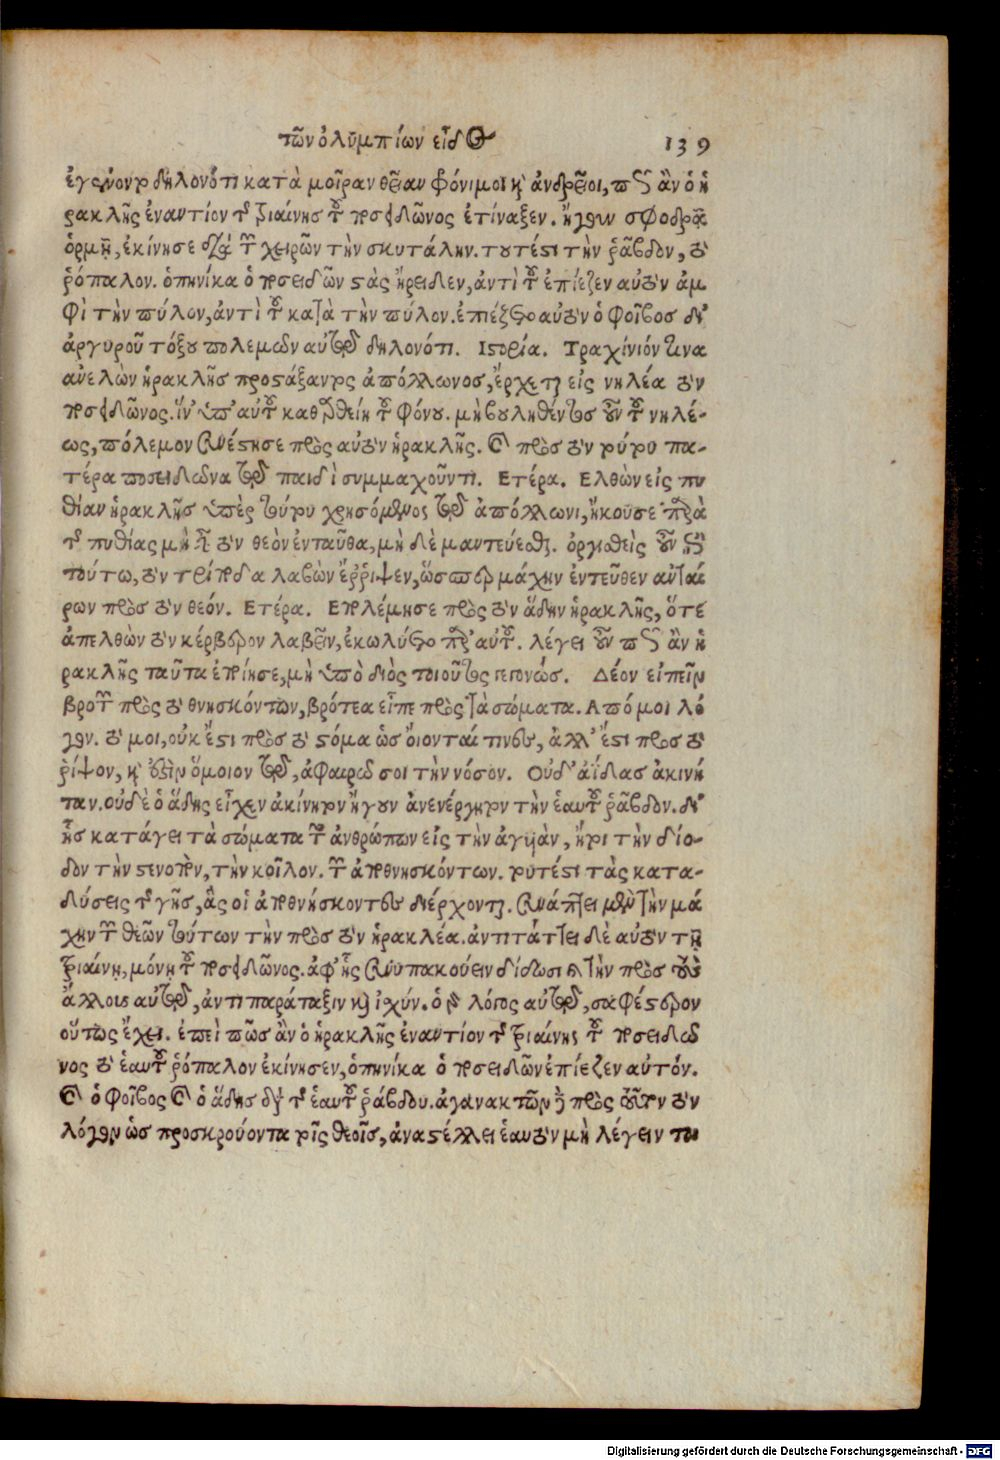 τῶν ὀλυμπίων εἶδος 139
ἐγένοντο δηλονότι κατὰ μοῖραν θείαν φρόνιμοι καὶ ἀνδρεῖοι, πῶς ἂν ὁ ἡ
ρακλῆς ἐναντίον τῆς τριαίνης τοῦ ποσειδῶνος ἐτίναξεν. ἤγουν σφοδρᾷ
ὁρμῇ, ἐκίνησε διὰ τῶν χειρῶν τὴν σκυτάλην. τουτέστι τὴν ῥάβδον, τὸ
ῥόπαλον. ὁπηνίκα ὁ ποσειδῶν στὰς ἤρειδεν, ἀντὶ τοῦ ἐπίεζεν αὐτὸν ἀμ
φὶ τὴν πύλον, ἀντὶ τοῦ κατὰ τὴν πύλον. ἐπιέζετο αὐτὸν ὁ φοῖβος δι'
ἀργυροῦ τόξου πολεμῶν αὐτῷ δηλονότι. Ἱστορία. Τραχίνιόν τινα
ἀνελὼν ἡρακλῆς προστάξαντος ἀπόλλωνος, ἔρχεται εἰς νηλέα τὸν
ποσειδῶνος. ἵν' ὑπ' αὐτοῦ καθαρθείη τοῦ φόνου. μὴ βουληθέντος οὖν τοῦ νηλέ-
ως, πόλεμον συνέστησε πρὸς αὐτὸν ἡρακλῆς. καὶ πρὸς τὸν τούτου πα-
τέρα ποσειδῶνα τῷ παιδὶ συμμαχοῦντι. Ετέρα. Ελθὼν εἰς πυ
θίαν ἡρακλῆς ὑπὲρ τούτου χρησόμενος τῷ ἀπόλλωνι, ἤκουσε παρὰ
τῆς πυθίας μὴ εἶναι τὸν θεὸν ἐνταῦθα, μὴ δὲ μαντεύεσθαι. ὀργισθεὶς οὖν ἐπὶ
τούτῳ, τὸν τρίποδα λαβὼν ἔῤῥιψεν, ὥσπερ μάχην ἐντεῦθεν ἀνταί
ρων πρὸς τὸν θεόν. Ετέρα. Επολέμησε πρὸς τὸν ἅδην ἡρακλῆς, ὅτε
ἀπελθὼν τὸν κέρβερον λαβεῖν, ἐκωλύετο παρ' αὐτοῦ. λέγει οὖν πῶς ἂν ἡ
ρακλῆς ταῦτα ἐποίησε, μὴ ὑπὸ διὸς τοιοῦτος γεγονώς. Δέον εἰπεῖν
βροτῶν πρὸς τὸ θνησκόντων, βρότεα εἶπε πρὸς τὰ σώματα. Από μοι λό
γον. τὸ μοι, οὐκ ἔστι πρὸς τὸ στόμα ὡς οἴονταί τινες, ἀλλ' ἔστι πρὸς τὸ
ῥίψον, καὶ ἔστιν ὅμοιον τῷ, ἀφαιρῶ σοι τὴν νόσον. Οὐδ' ἀΐδας ἀκινή
ταν. οὐδὲ ὁ ἅδης εἶχεν ἀκίνητον ἤγουν ἀνενέργητον τὴν ἑαυτοῦ ῥάβδον. δι'
ἧς κατάγει τὰ σώματα τῶν ἀνθρώπων εἰς τὴν ἀγυιὰν, ἤτοι τὴν δίο-
δον τὴν στενοτὸν, τὴν κοῖλον. τῶν ἀποθνησκόντων. τουτέστι τὰς κατα-
δύσεις τῆς γῆς, ἃς οἱ ἀποθνήσκοντες διέρχονται. συνάπτει μὲν τὴν μά
χην τῶν θεῶν τούτων τὴν πρὸς τὸν ἡρακλέα. ἀντιτάττει δὲ αὐτὸν τῇ
τριαίνῃ, μόνῃ τοῦ ποσειδῶνος. ἀφ' ἧς συνυπακούειν δίδωσι καὶ τὴν πρὸς τοὺς
ἄλλους αὐτῷ, ἀντιπαράταξιν καὶ ἰσχύν. ὁ δὲ λόγος αὐτῷ, σαφέστερον
οὕτως ἔχει. ἐπεὶ πῶς ἂν ὁ ἡρακλῆς ἐναντίον τῆς τριαίνης τοῦ ποσειδῶ
νος τὸ ἑαυτοῦ ῥόπαλον ἐκίνησεν, ὁπηνίκα ὁ ποσειδῶν ἐπίεζεν αὐτόν.
καὶ ὁ φοῖβος καὶ ὁ ἅδης διὰ τῆς ἑαυτοῦ ῥάβδου. ἀγανακτῶν δὲ πρὸς τοῦτον τὸν
λόγον ὡς προσκρούοντα τοῖς θεοῖς, ἀναστέλλει ἑαυτὸν μὴ λέγειν τοι
Digitalisierung gefördert durch die Deutsche Forschungsgemeinschaft - DFG